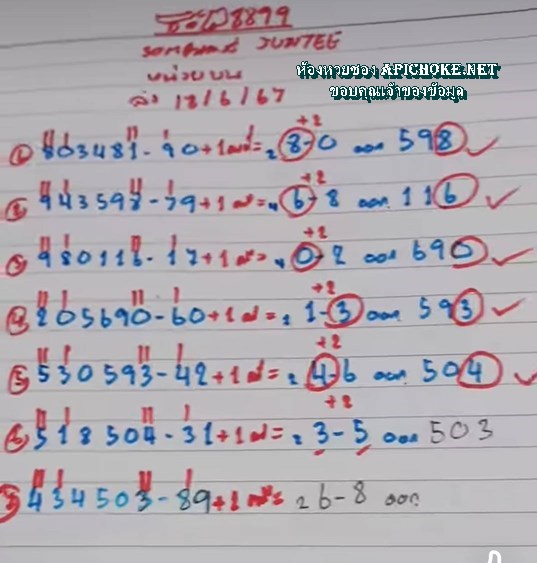 8899
JUMTEG
ห้องหวยของ APICHOKE.NET
ขอบคุณเจ้าของข้อมูล
หน่วยบน
18/6/67
+2
① 803481-90+1 = 2 8-0 ออก 598 ✓
+2
② 943598-79+1 = 6-8 ออก 116 ✓
+2
③ 980116-17+1 = 0-2 ออก 690 ✓
+2
④ 205690-60+1 = 2 1-3 ออก 593 ✓
+2
⑤ 530593-42+1 = 2 4-6 ออก 504 ✓
+2
⑥ 518504-31+1 = 2 3-5 ออก 503
434503-89+1 = 2 6-8 ออก